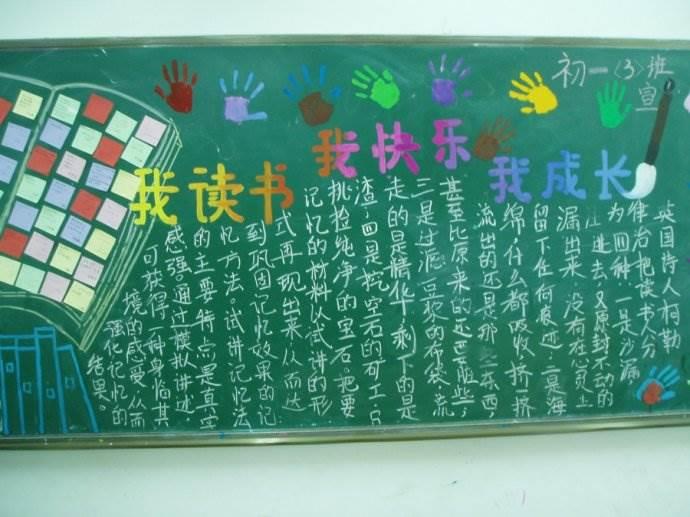 初一〈3〉班
宣
我读书
我快乐
我成长
英国诗人柯勒
律治把读书人分
为四种:一是沙漏
注进去,又原封不动的
漏出来,没有在心灵上
留下任何痕迹;二是海
绵,什么都吸收,挤挤
流出的还是那些东西,
甚至比原来的还更脏些;
三是过滤豆浆的布袋,流
走的是精华,剩下的是
渣;四是挖空石的矿工只
挑捡纯净的宝石。把要
记忆的材料以试讲的形
式再现出来,从而达
到巩固记忆效果的记
忆方法。试讲记忆法
的主要特点是真实
感强。通过模拟讲述,
可获得一种身临其
境的感受,从而
强化记忆的
结果。